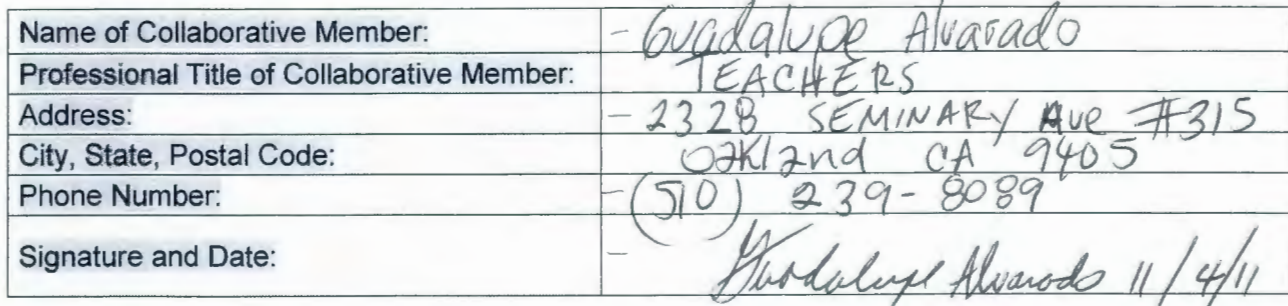 Name of Collaborative Member: - Guadalupe Alvarado
Professional Title of Collaborative Member: TEACHERS
Address: - 2328 SEMINARY Ave #315
City, State, Postal Code: Oakland CA 9405
Phone Number: - (510) 239-8089
Signature and Date: - Guadalupe Alvarado 11/4/11